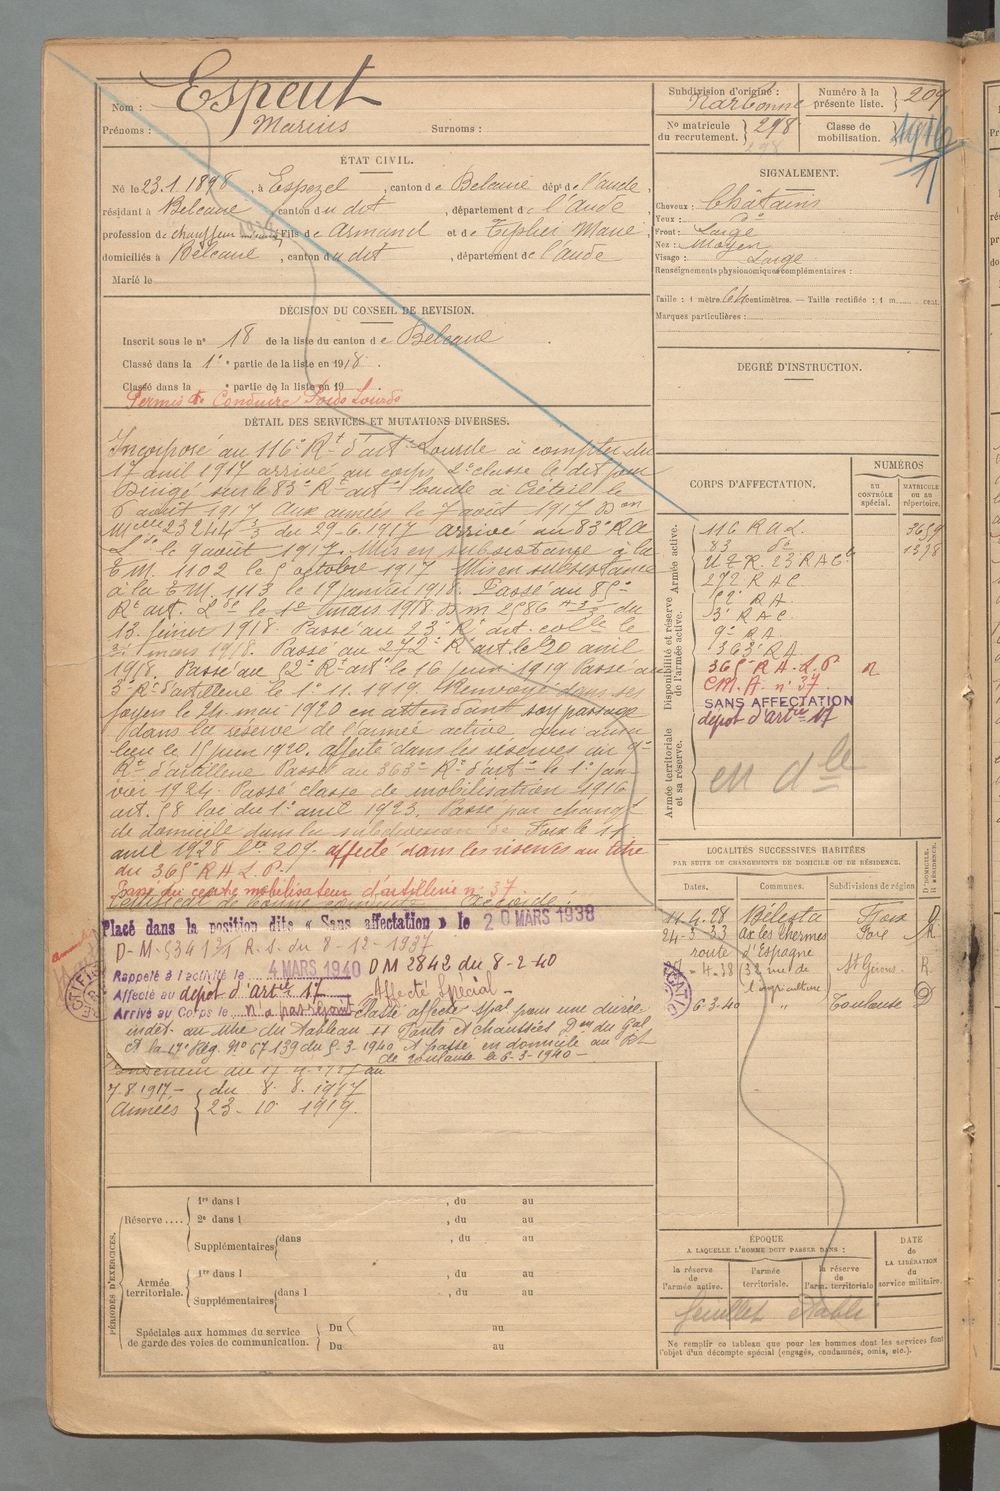 Nom : Espeut
Prénoms : Marius Surnoms :
ÉTAT CIVIL.
Né le 23.1.1898, à Espezel, canton de Belcaire dépt de l'aude,
résidant à Belcaire, canton du dit, département de l'Aude
profession de chauffeur Fils de Armand et de Tiplier Marie,
domiciliés à Belcaire, canton du dit, département de l'aude
Marié le
DÉCISION DU CONSEIL DE REVISION.
Inscrit sous le n° 18 de la liste du canton de Belcaire.
Classé dans la 1e partie de la liste en 1918.
Classé dans la e partie de la liste en 19 .
Permis de Conduire Poids Lourds
DÉTAIL DES SERVICES ET MUTATIONS DIVERSES.
Incorporé au 116e Rt d'art Lourde à compter du
17 avril 1917 arrivé au corps 2e classe le dit jour
Dirigé sur le 83e Rt art lourde à Créteil le
6 août 1917 Aux armées le 7 août 1917 Don
Mlle 23244 3/3 du 29-6-1917 arrivé au 83e RA
Lde le 9 août 1917. Mis en subsistance à la
T.M. 1102 le 5 octobre 1917 Mis en subsistance
à la T.M. 1113 le 19 janvier 1918. Passé au 85e
Rt art. Lde le 1er mars 1918 D m 2586 du
13 février 1918. Passé au 23e Rt art. colle le
mars 1918. Passé au 272e Rt art. le 20 avril
1918. Passé au 52e Rt art le 16 juin 1919 Passé au
3e Rt d'artillerie le 1e 11. 1919. Renvoyé dans ses
foyers le 24 mai 1920 en attendant son passage
dans la réserve de l'armée active, qui aura
lieu le 15 juin 1920. affecté dans les réserves au 9e
Rt d'artillerie Passé au 363e Rt d'arte le 1e jan-
vier 1924. Passé classe de mobilisation 1916
art. 58 loi du 1e avril 1923. Passé par changt
de domicile dans la subdivision de Foix le 11
avril 1928 Lte 209. affecté dans les réserves au titre
du 365e R A L P.
centre mobilisateur d'artillerie n° 37.
Certificat de bonne conduite Accordé.
Placé dans la position dite « Sans affectation » le 20 MARS 1938
D-M-534131 R.S. du 8-12-1937
Rappelé à l'activité le 4 MARS 1940 DM 2842 du 8-2-40
Affecté au dépôt d'artie 17 Affecté Spécial -
Arrivé au Corps le n'a pas rejoint Classé affecté spal pour une durée
indét. au titre du Tableau 11 Ponts et chaussées Don du Gal
Ct la 17e Rég. N° 67139 du 5-3-1940. A passé en domicile au
de Toulouse le 6-3-1940 -
au
7.8.1917 - du 8. 8. 1917
Armées 23. 10 1919.
PÉRIODES D'EXERCICES.
Réserve .... 1re dans l , du au
2e dans l , du au
Supplémentaires dans , du au
Armée territoriale. 1re dans l , du au
Supplémentaires dans l , du au
Spéciales aux hommes du service de garde des voies de communication. Du au
Du au
Subdivision d'origine : Narbonne
Numéro à la présente liste. 209
No matricule du recrutement. 298
298
Classe de mobilisation. 1916
SIGNALEMENT.
Cheveux : Châtains
Yeux : do
Front : Large
Nez : Moyen
Visage : Large
Renseignements physionomiques complémentaires :
Taille : 1 mètre 64 centimètres. — Taille rectifiée : 1 m. cent.
Marques particulières :
DEGRÉ D'INSTRUCTION.
CORPS D'AFFECTATION.
NUMÉROS
AU CONTRÔLE SPÉCIAL.
MATRICULE OU AU RÉPERTOIRE.
Armée active.
Disponibilité et réserve de l'armée active.
Armée territoriale et sa réserve.
116 R A L 3659
83 do 1378
23 R A C
272 R A C
52e RA
3e R A C
9e RA
363e RA
365e R A. L. P
C M. A. n° 37
SANS AFFECTATION
dépôt d'artie 17
en dle
LOCALITÉS SUCCESSIVES HABITÉES
PAR SUITE DE CHANGEMENTS DE DOMICILE OU DE RÉSIDENCE.
Dates. Communes. Subdivisions de région D. DOMICILE. R. RÉSIDENCE.
11-4-28 Bélesta Foix D.
24-3-33 ax les Thermes Foix R.
route d'Espagne
-4.38 (32 rue de l'agriculture) St Girons R.
6-3-40 " Toulouse D
ÉPOQUE
A LAQUELLE L'HOMME DOIT PASSER DANS :
la réserve de l'armée active.
l'armée territoriale.
la réserve de l'arm. territoriale.
DATE de LA LIBÉRATION du service militaire.
feuillet établi
Ne remplir ce tableau que pour les hommes dont les services font
l'objet d'un décompte spécial (engagés, condamnés, omis, etc.).